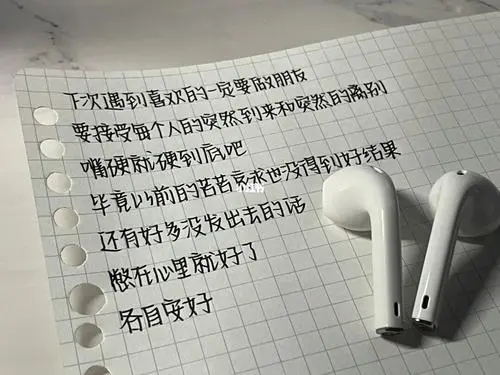 下次遇到喜欢的一定要做朋友
要接受每个人的突然到来和突然的离别
嘴硬就硬到底吧
毕竟以前的苦苦哀求也没得到好结果
还有好多没发出去的话
憋在心里就好了
各自安好